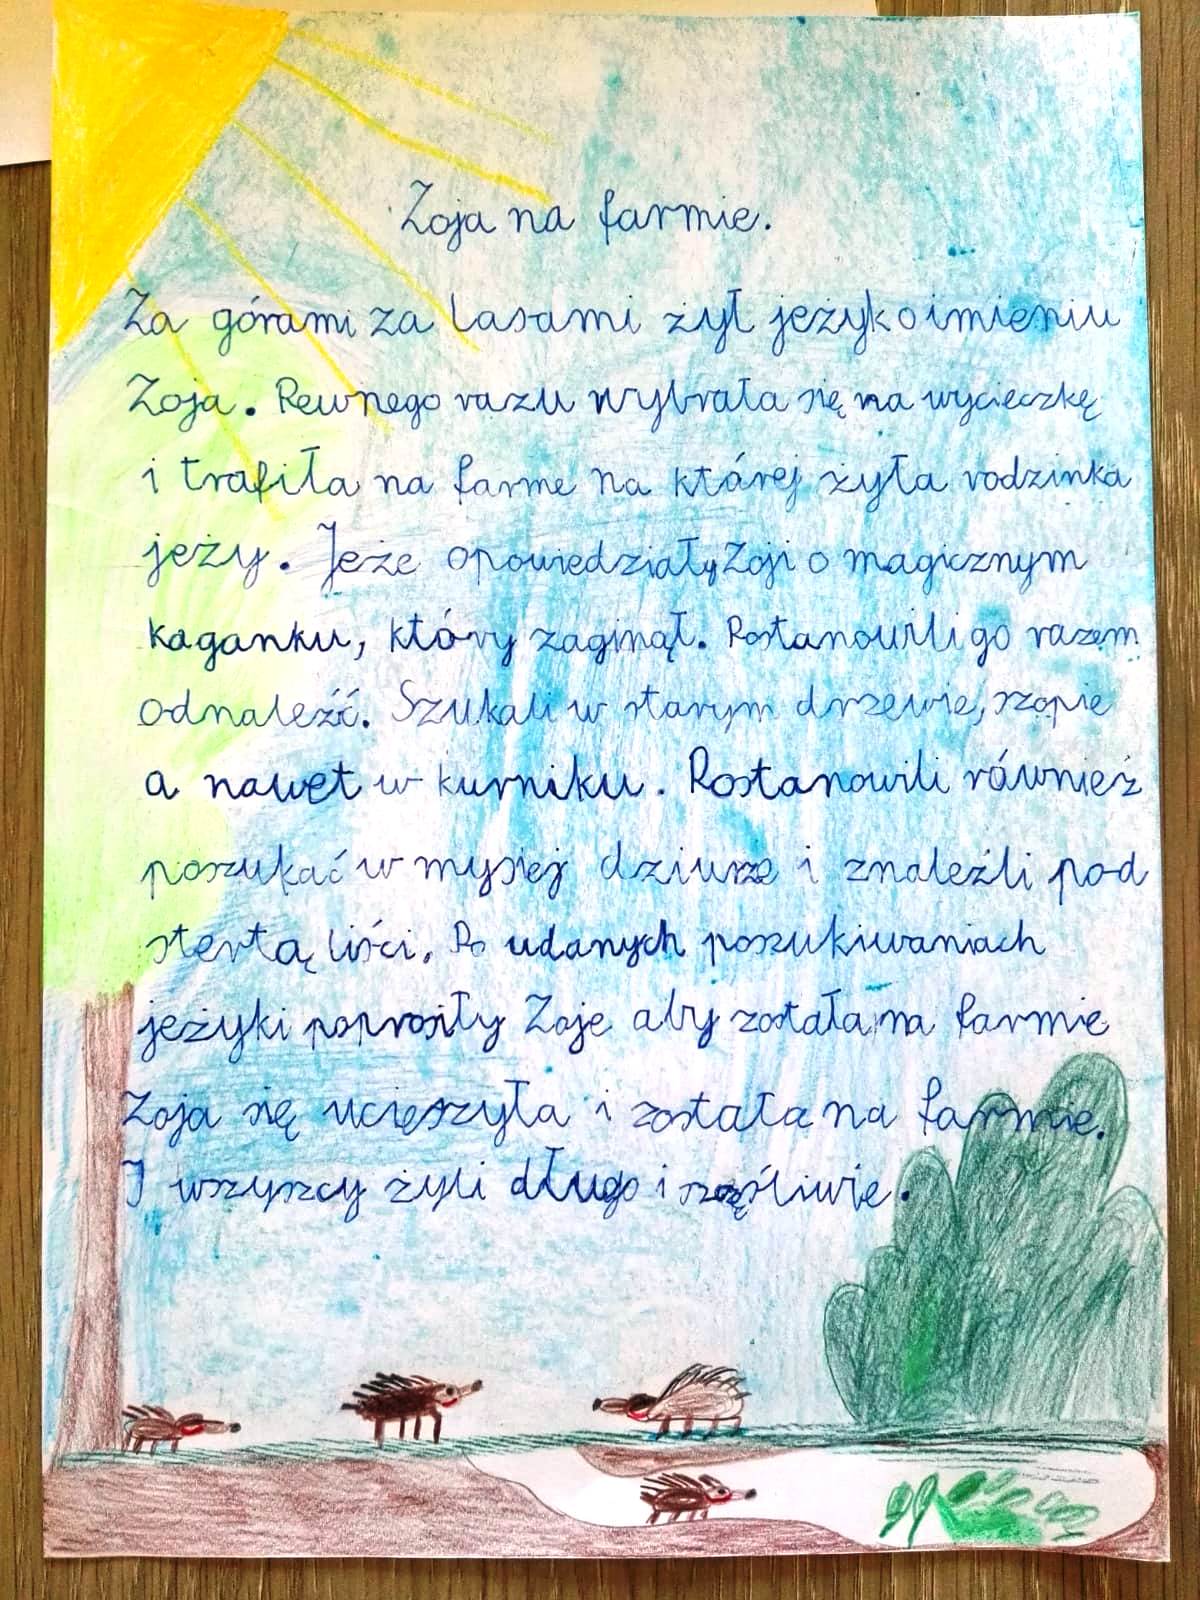 Zoja na farmie.
Za górami za lasami żył jeżyk o imieniu
Zoja. Pewnego razu wybrała się na wycieczkę
i trafiła na farme na której żyła rodzinka
jeży. Jeże opowiedziały Zoji o magicznym
kaganku, który zaginął. Postanowili go razem
odnaleźć. Szukali w starym drzewie, szopie
a nawet w kurniku. Postanowili również
poszukać w mysiej dziurze i znaleźli pod
stertą liści. Po udanych poszukiwaniach
jeżyki poprosiły Zoje aby została na farmie
Zoja się ucieszyła i została na farmie.
I wszyscy żyli długo i szczęśliwie.